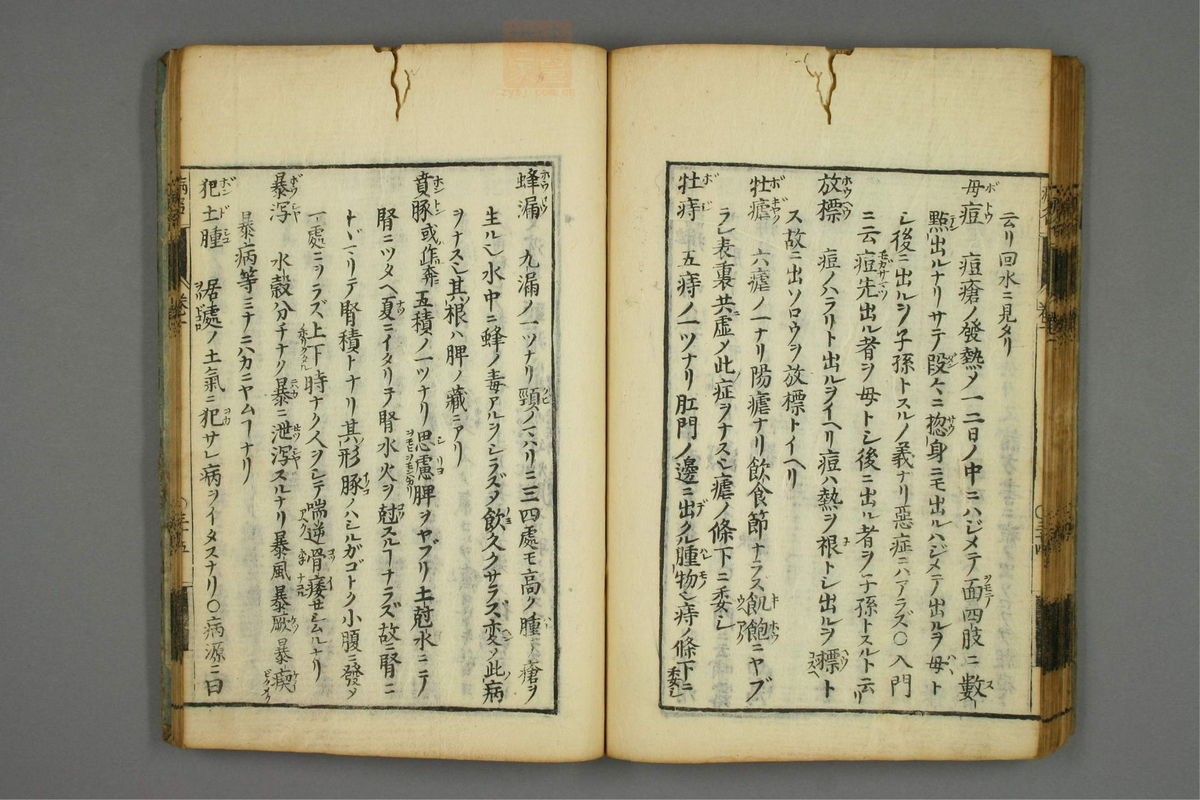 云リ回水ニ見タリ
母痘 痘瘡ノ發熱〆一二日ノ中ニハジメテ面四肢ニ數
點出ルナリサテ段々ニ惣身ニモ出ルハジメテ出ルヲ母ト
シ後ニ出ルヲ子孫トスルノ義ナリ惡症ニハアラズ〇入門
ニ云痘先出ル者ヲ母トシ後ニ出ル者ヲ子孫トスルト云リ
放標 痘ノハラリト出ルヲイヘリ痘ハ熱ヲ根トシ出ルヲ標ト
ス故ニ出ソロウヲ放標トイヘリ
牡瘧 六瘧ノ一ナリ陽瘧ナリ飲食節ナラス飢飽ニヤブ
ラレ表裏共虚〆此症ヲナス瘧ノ條下ニ委シ
牡痔 五痔ノ一ツナリ肛門ノ邊ニ出クル腫物痔ノ條下ニ委シ
蜂漏 九漏ノ一ツナリ頸ノマハリニ三四處モ高ク腫瘡ヲ
生ル水中ニ蜂ノ毒アルヲシラズ〆飲久クサラズ変〆此病
ヲナス其根ハ脾ノ藏ニアリ
賁豚 或作奔 五積ノ一ツナリ思慮脾ヲヤブリ土尅水ニテ
腎ニツタヘ夏ニイタリテ腎水火ヲ尅スルヿナラズ故ニ腎ニ
トドマリテ腎積トナリ其形豚ノハシルガゴトク小腹ニ發〆
一處ニヲラズ上下時ナク人ヲシテ喘逆骨痿セシムルナリ
暴瀉 水穀分チナク暴ニ泄瀉スルナリ暴風暴厥暴瘈
暴病等ミナニハカニヤムヿナリ
犯土腫 居處ノ土氣ニ犯サレ病ヲイタスナリ〇病源ニ曰